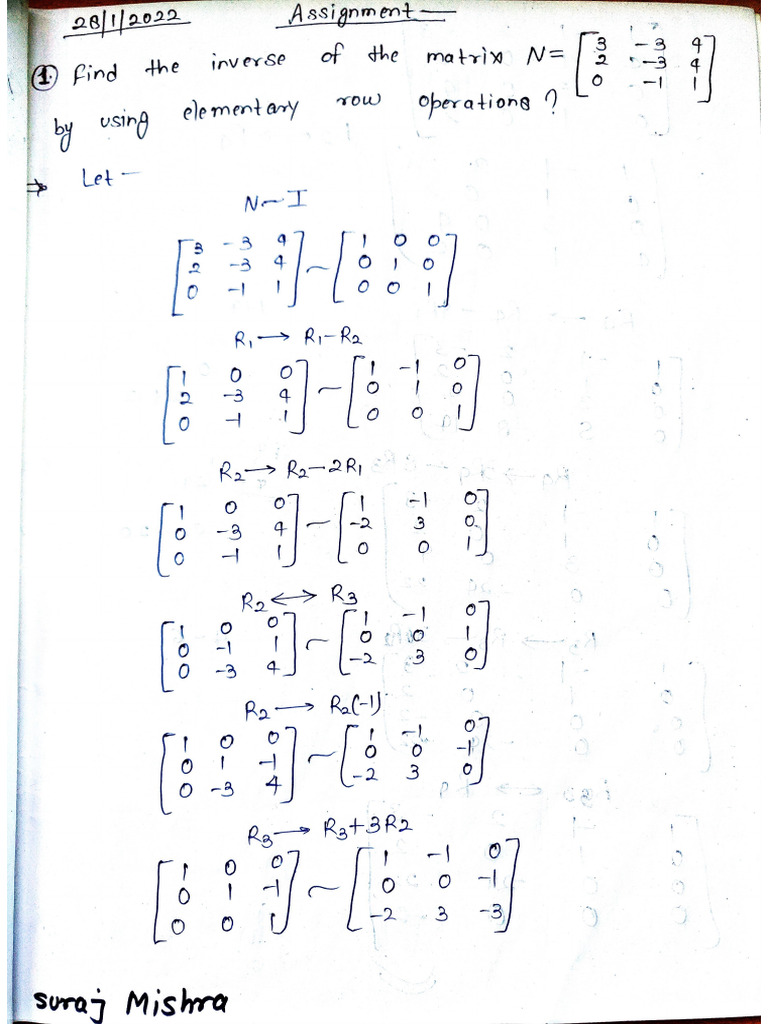 28/1/2022 Assignment —
① Find the inverse of the matrix N = [3 -3 4
2 -3 4
0 -1 1]
by using elementary row operations ?
⇒ Let —
N ~ I
[3 -3 4] ~ [1 0 0]
[2 -3 4] [0 1 0]
[0 -1 1] [0 0 1]
R₁ → R₁-R₂
[1 0 0] ~ [1 -1 0]
[2 -3 4] [0 1 0]
[0 -1 1] [0 0 1]
R₂ → R₂-2R₁
[1 0 0] ~ [1 -1 0]
[0 -3 4] [-2 3 0]
[0 -1 1] [0 0 1]
R₂ ↔ R₃
[1 0 0] ~ [1 -1 0]
[0 -1 1] [0 0 1]
[0 -3 4] [-2 3 0]
R₂ → R₂(-1)
[1 0 0] ~ [1 -1 0]
[0 1 -1] [0 0 -1]
[0 -3 4] [-2 3 0]
R₃ → R₃+3R₂
[1 0 0] ~ [1 -1 0]
[0 1 -1] [0 0 -1]
[0 0 1] [-2 3 -3]
Suraj Mishra